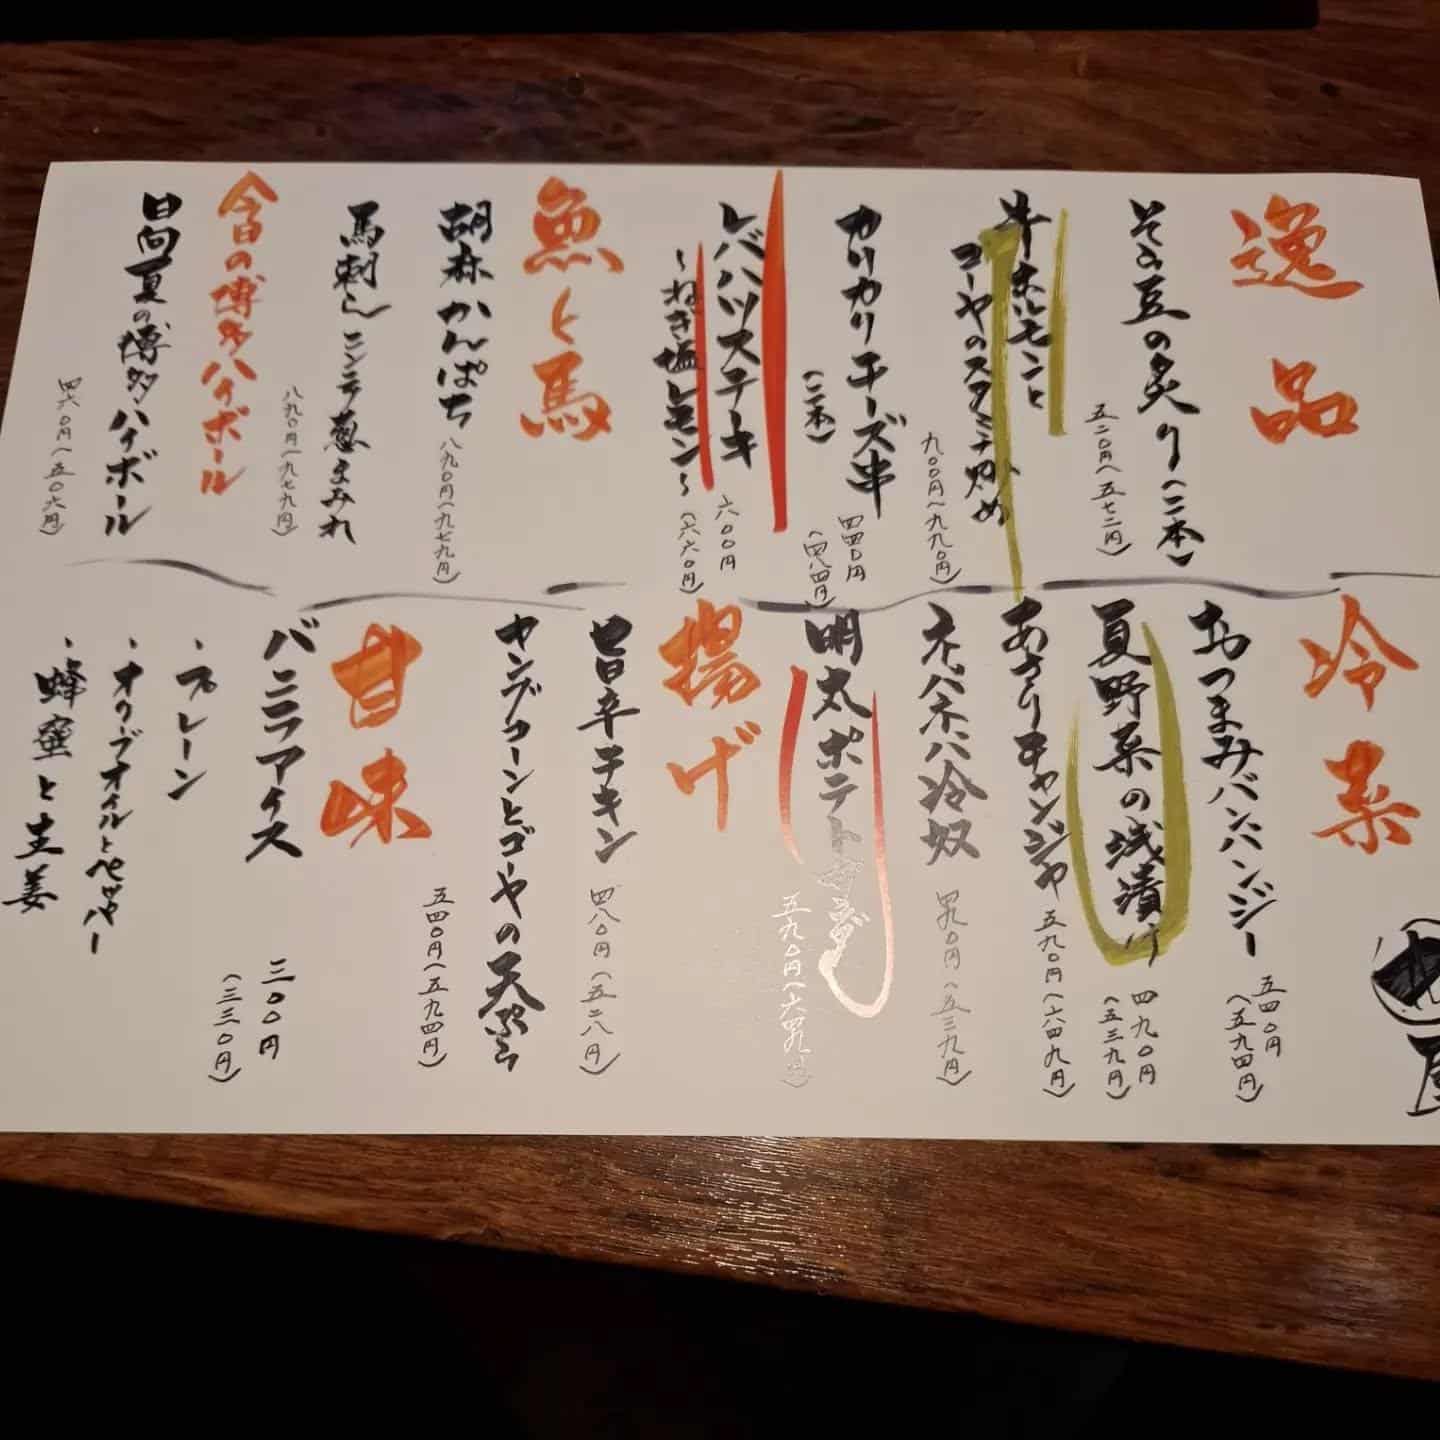 逸品
そら豆の炙り(二本)
五二〇円(五七二円)
牛ホルモンと
ゴーヤのスタミナ炒め
九〇〇円(九九〇円)
カリカリチーズ串
(二本)
四四〇円
(四八四円)
レバハツステーキ
~ねぎ塩レモン~
六〇〇円
(六六〇円)
魚と馬
胡麻かんぱち
八九〇円(九七九円)
馬刺し ニンニク葱まみれ
八九〇円(九七九円)
今日の博多ハイボール
日向夏の博多ハイボール
四六〇円(五〇六円)
冷菜
おつまみバンバンジー
五四〇円
(五九四円)
夏野菜の浅漬け
四九〇円
(五三九円)
あさりチャンジャ
五九〇円(六四九円)
ネバネバ冷奴
四九〇円(五三九円)
明太ポテトサラダ
五九〇円(六四九円)
揚げ
旨辛チキン
四八〇円(五二八円)
ヤングコーンとゴーヤの天ぷら
五四〇円(五九四円)
甘味
バニラアイス
三〇〇円
(三三〇円)
・プレーン
・オリーブオイルとペッパー
・蜂蜜と生姜
屋